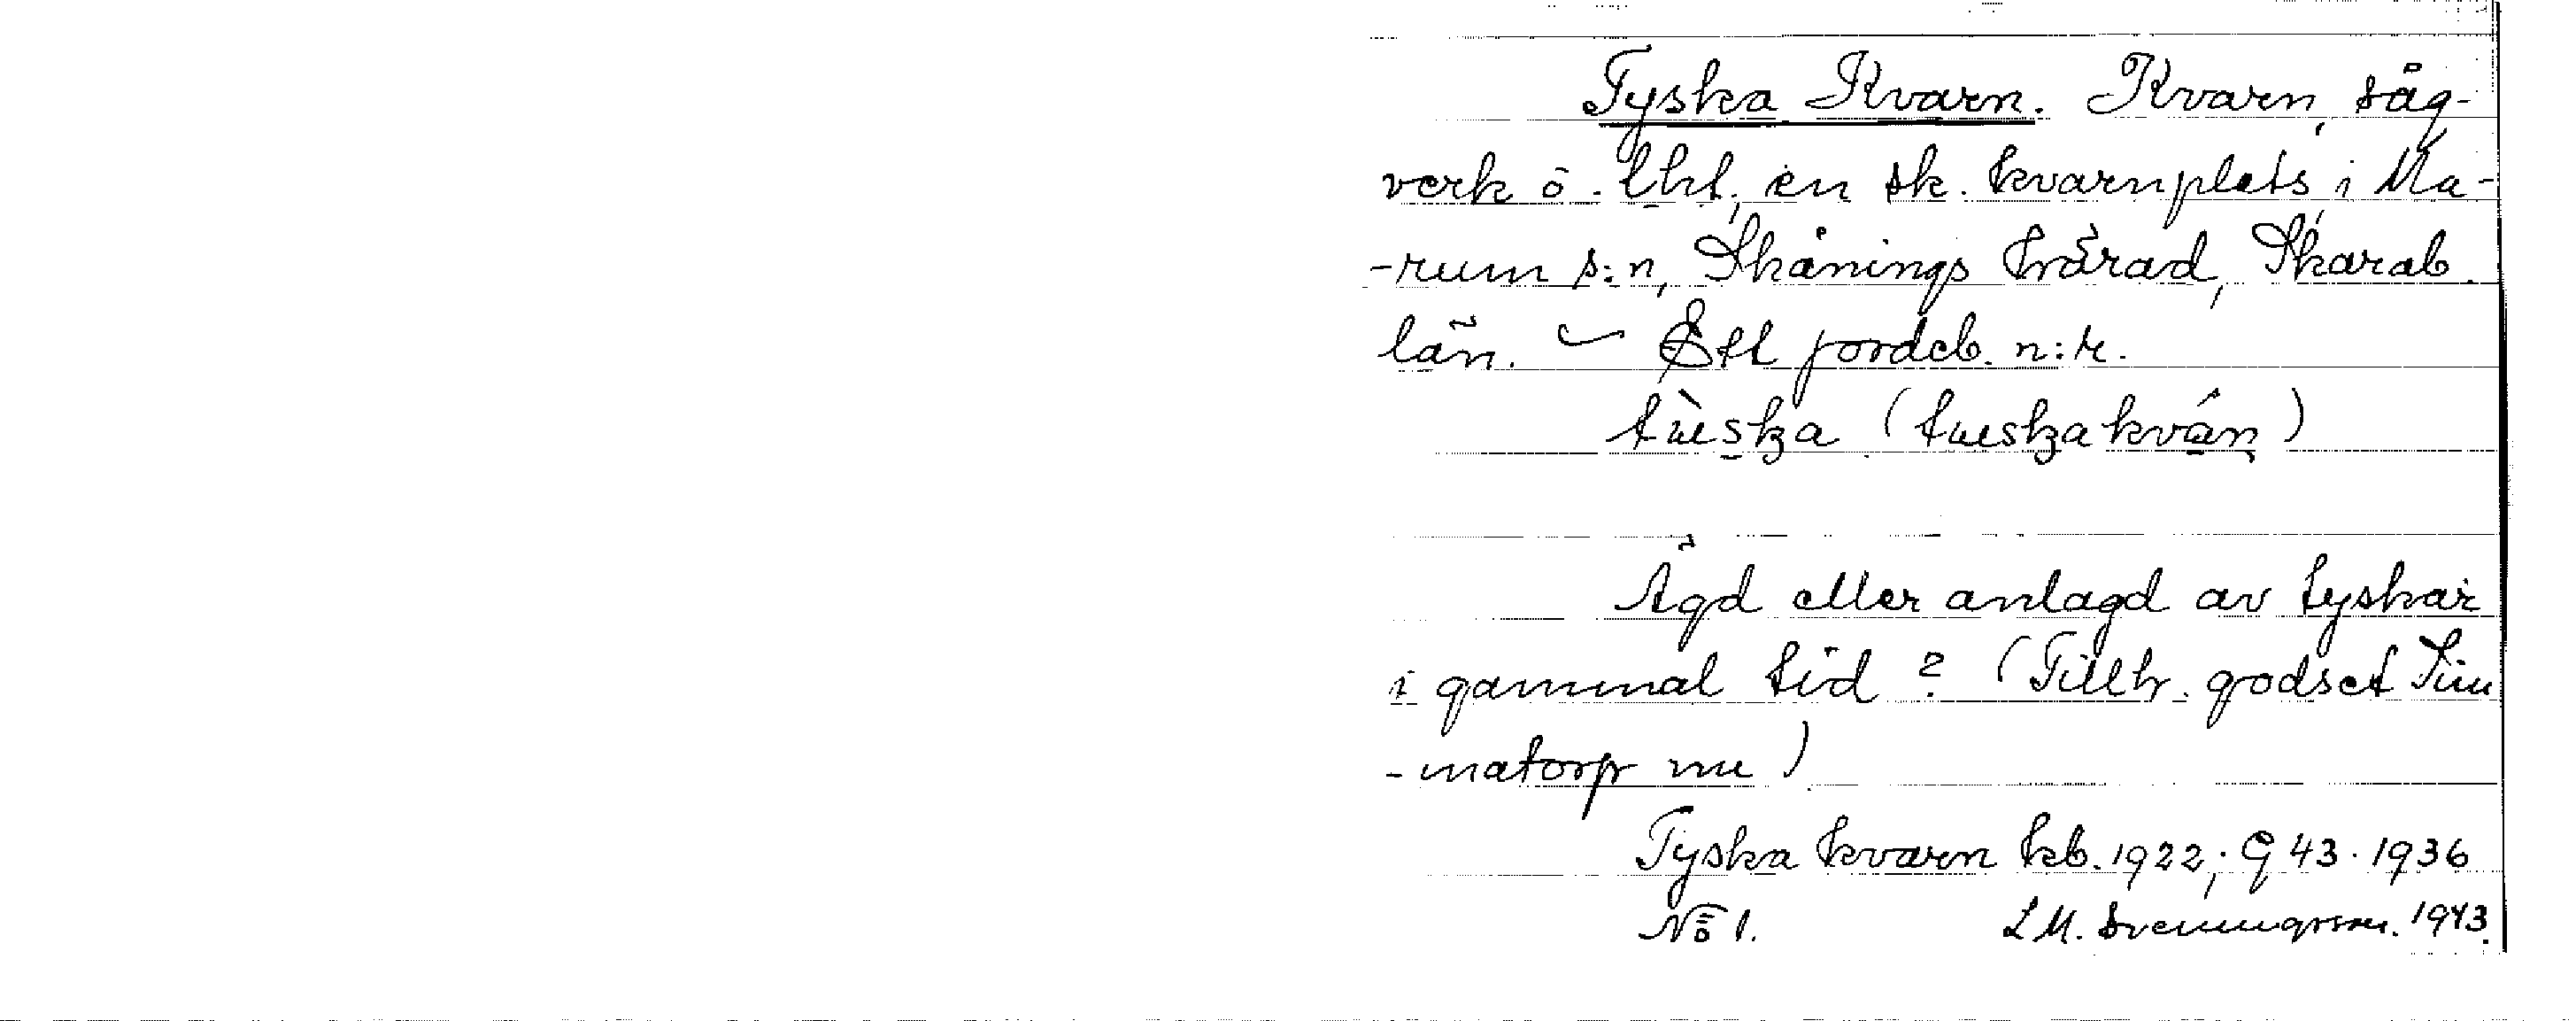 Tyska Kvarn. Kvarn, såg-
verk o. lht, en sk. kvarnplats, i Ma-
-rum s:n, Skånings härad, Skarab.
län. Ett jordeb. n:r.
Ägd eller anlagd av tyskar
i gammal tid? (Tillh. godset Sim
-matorp nu)
Tyska kvarn kb. 1922; G 43. 1936
No 1. L M. Svenungsson. 1943.